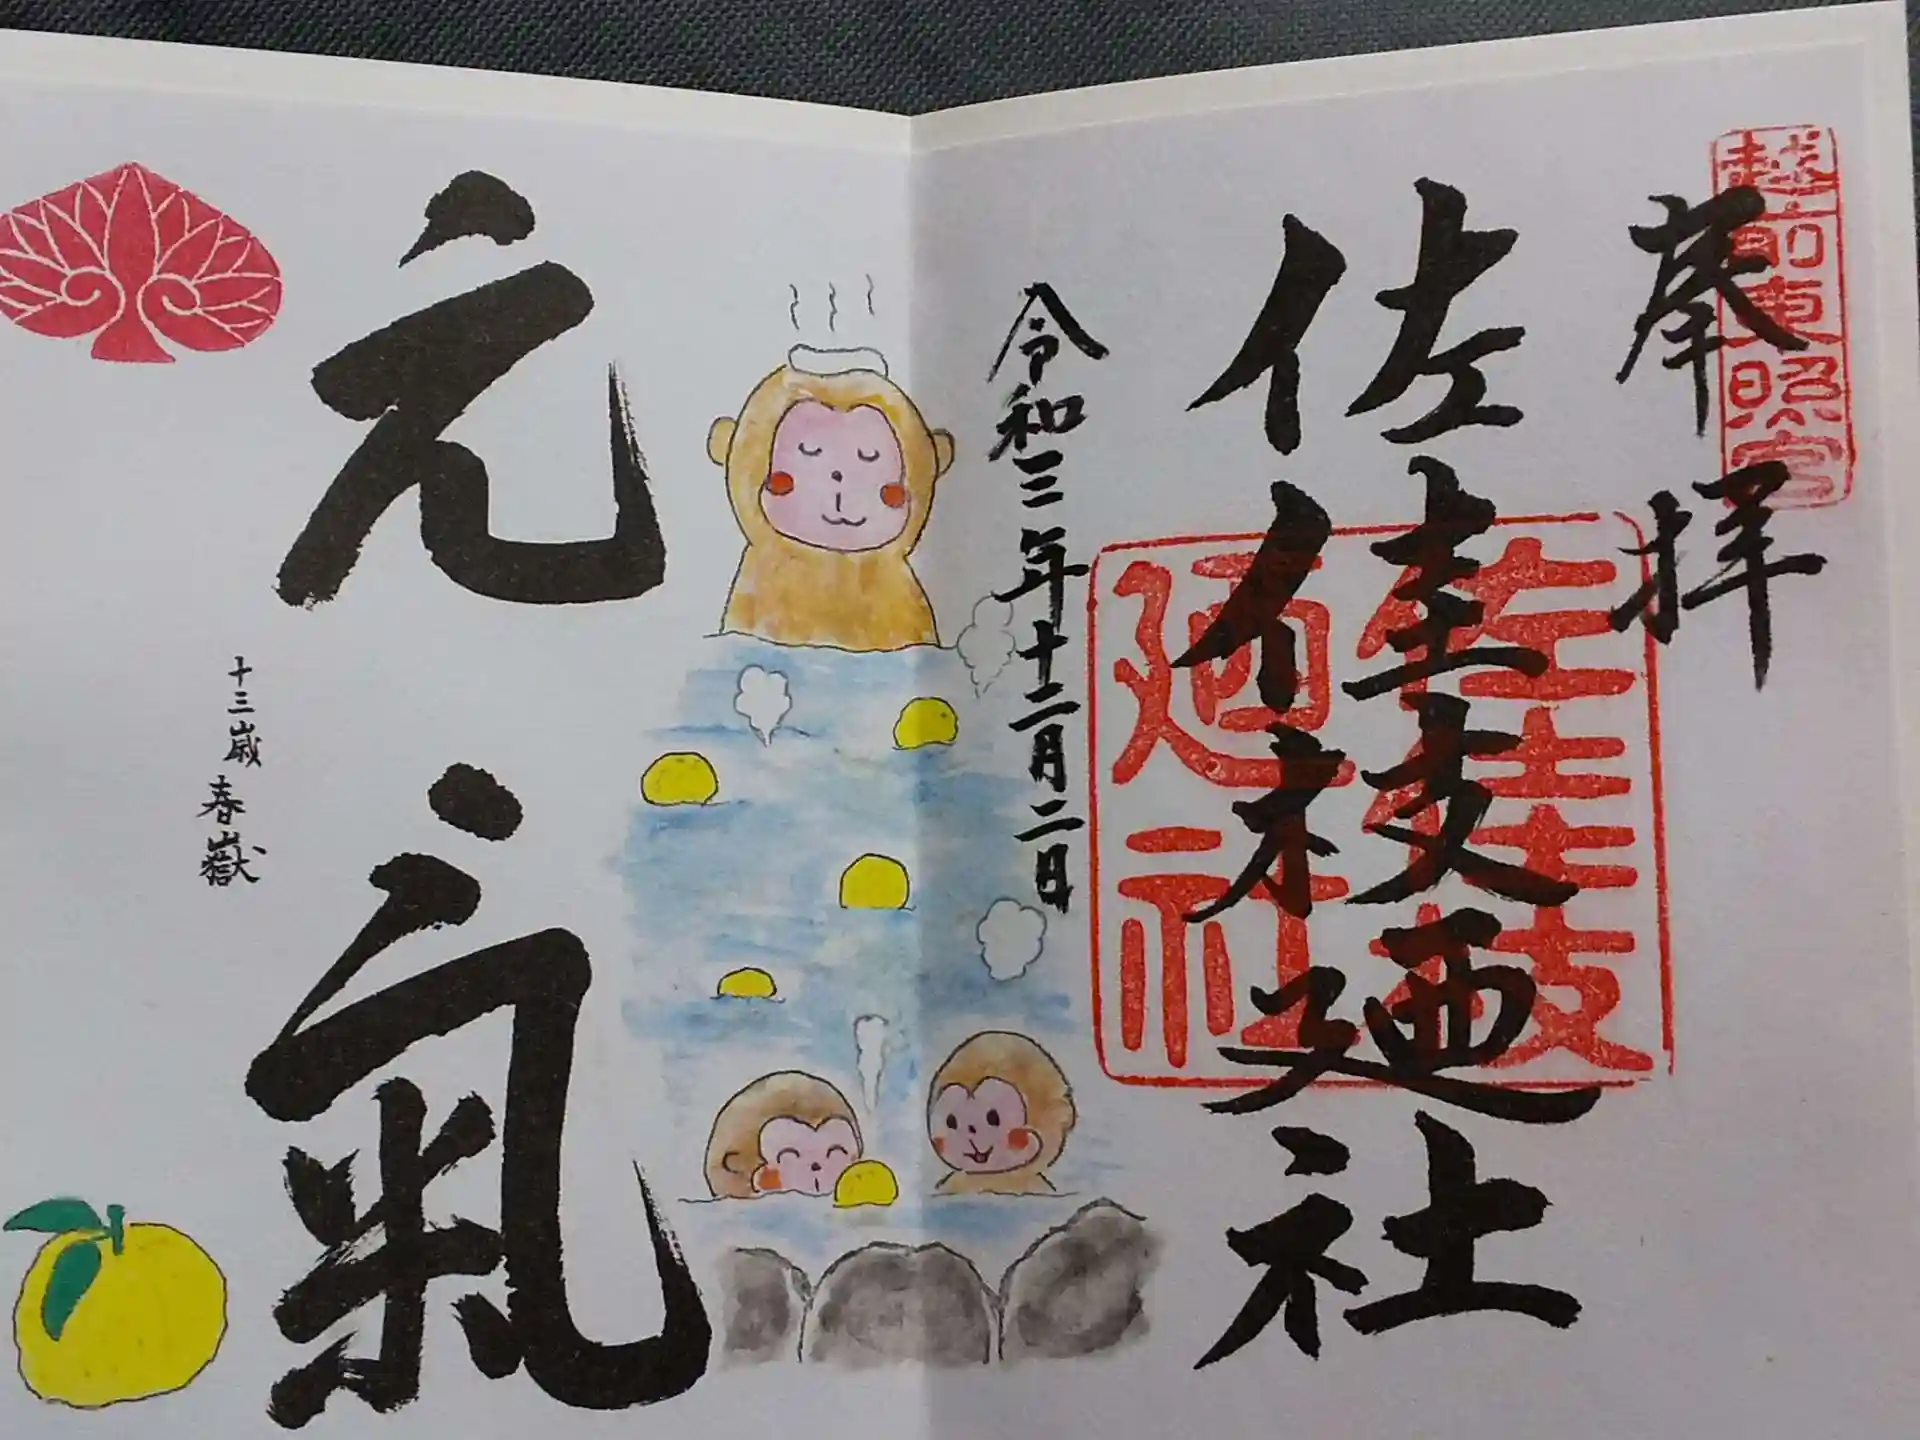 越前東照宮
奉拝
佐佳枝廼社
佐佳枝
廼社
令和三年十二月二日
元氣
十三歳 春嶽